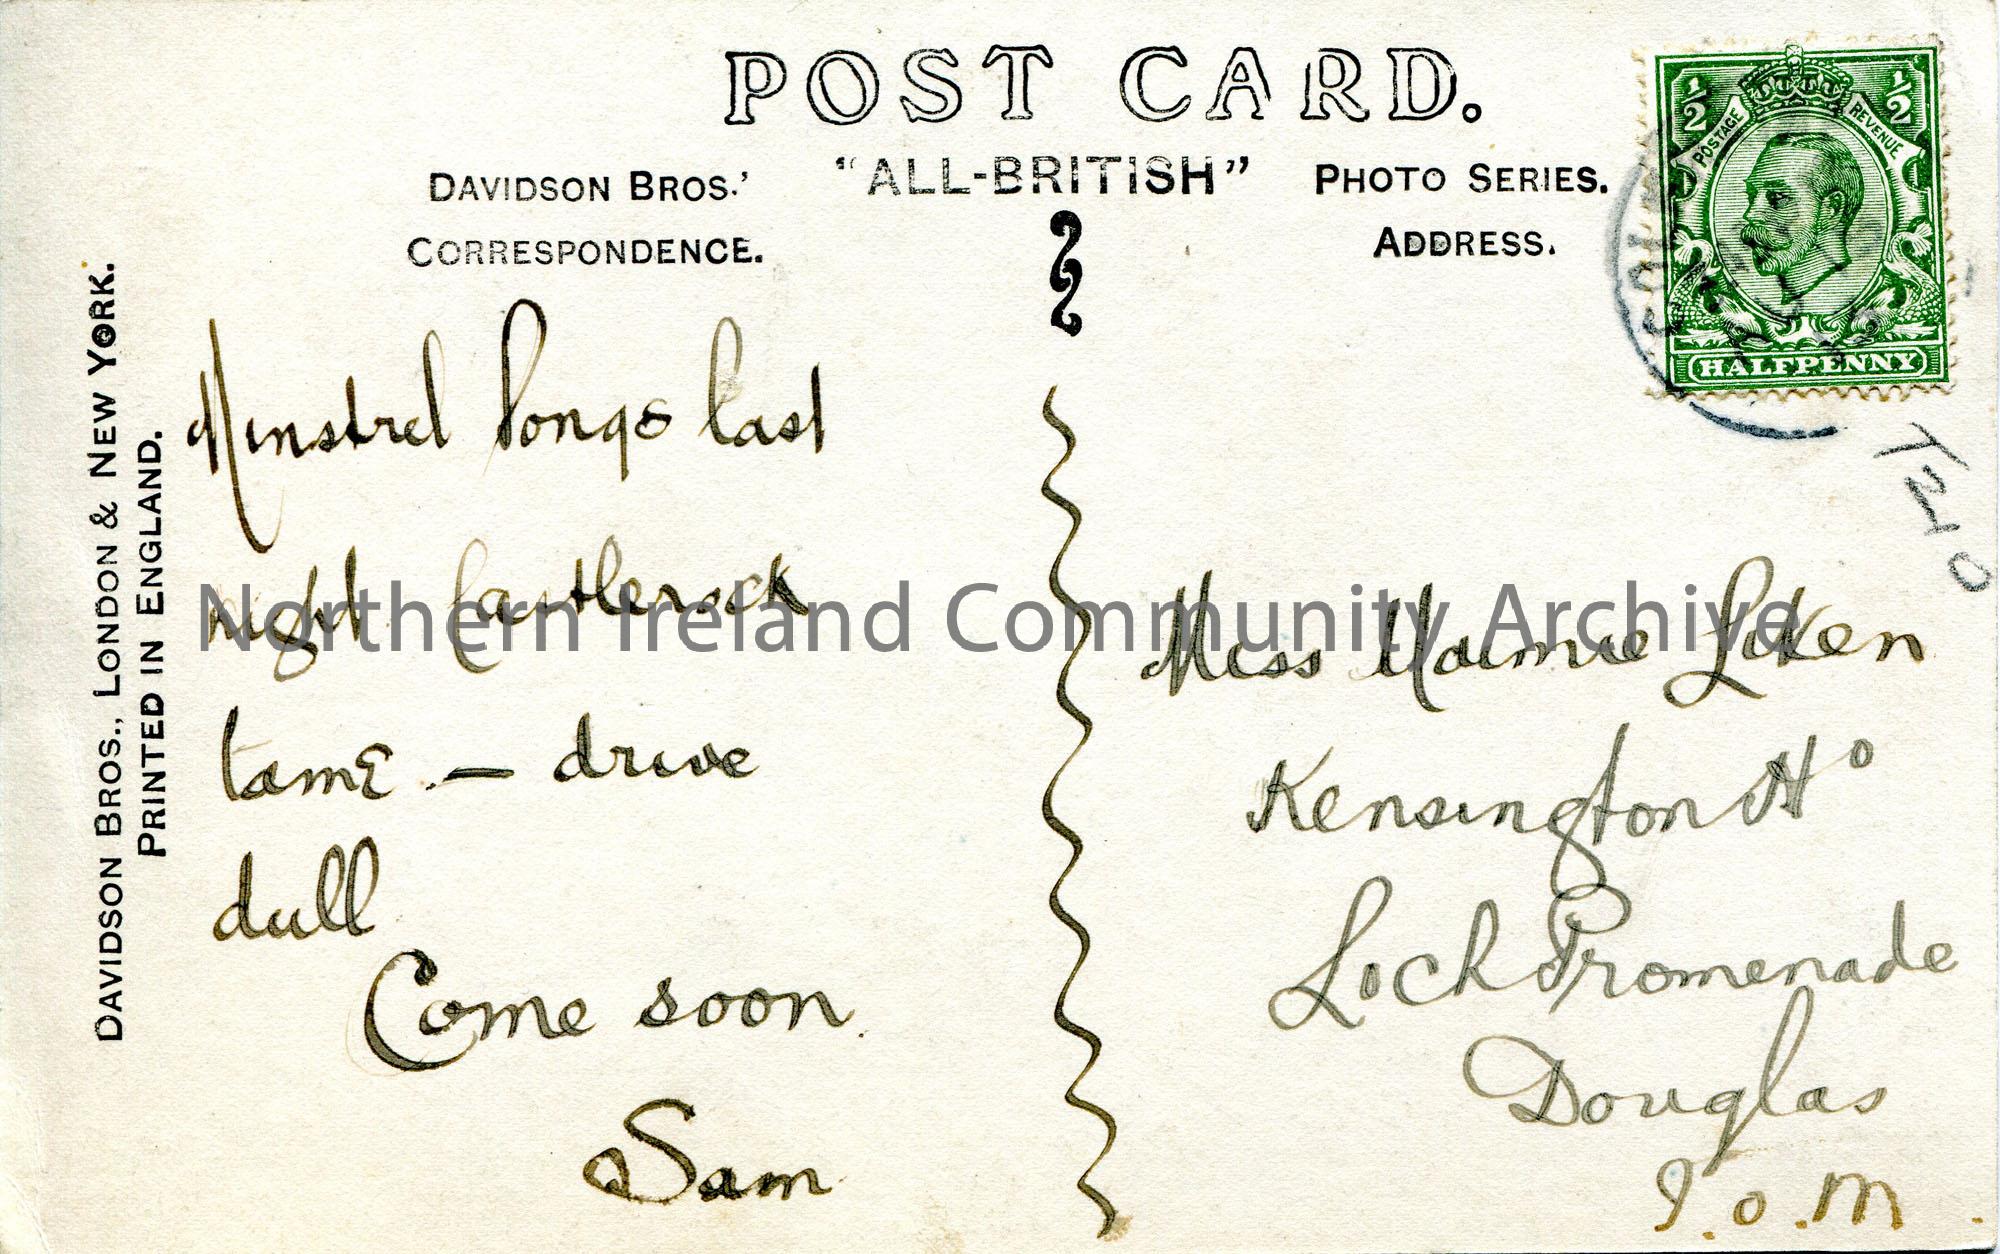 POST CARD.
DAVIDSON BROS.' "ALL-BRITISH" PHOTO SERIES.
CORRESPONDENCE. ADDRESS.
DAVIDSON BROS., LONDON & NEW YORK.
PRINTED IN ENGLAND.
½ ½
POSTAGE REVENUE
HALFPENNY
Minstrel Songs last
night Castlerock
tame — drive
dull
Come soon
Sam
Miss Maimie
Kensington Ho
Loch Promenade
Douglas
I.o.M.
Northern Ireland Community Archive